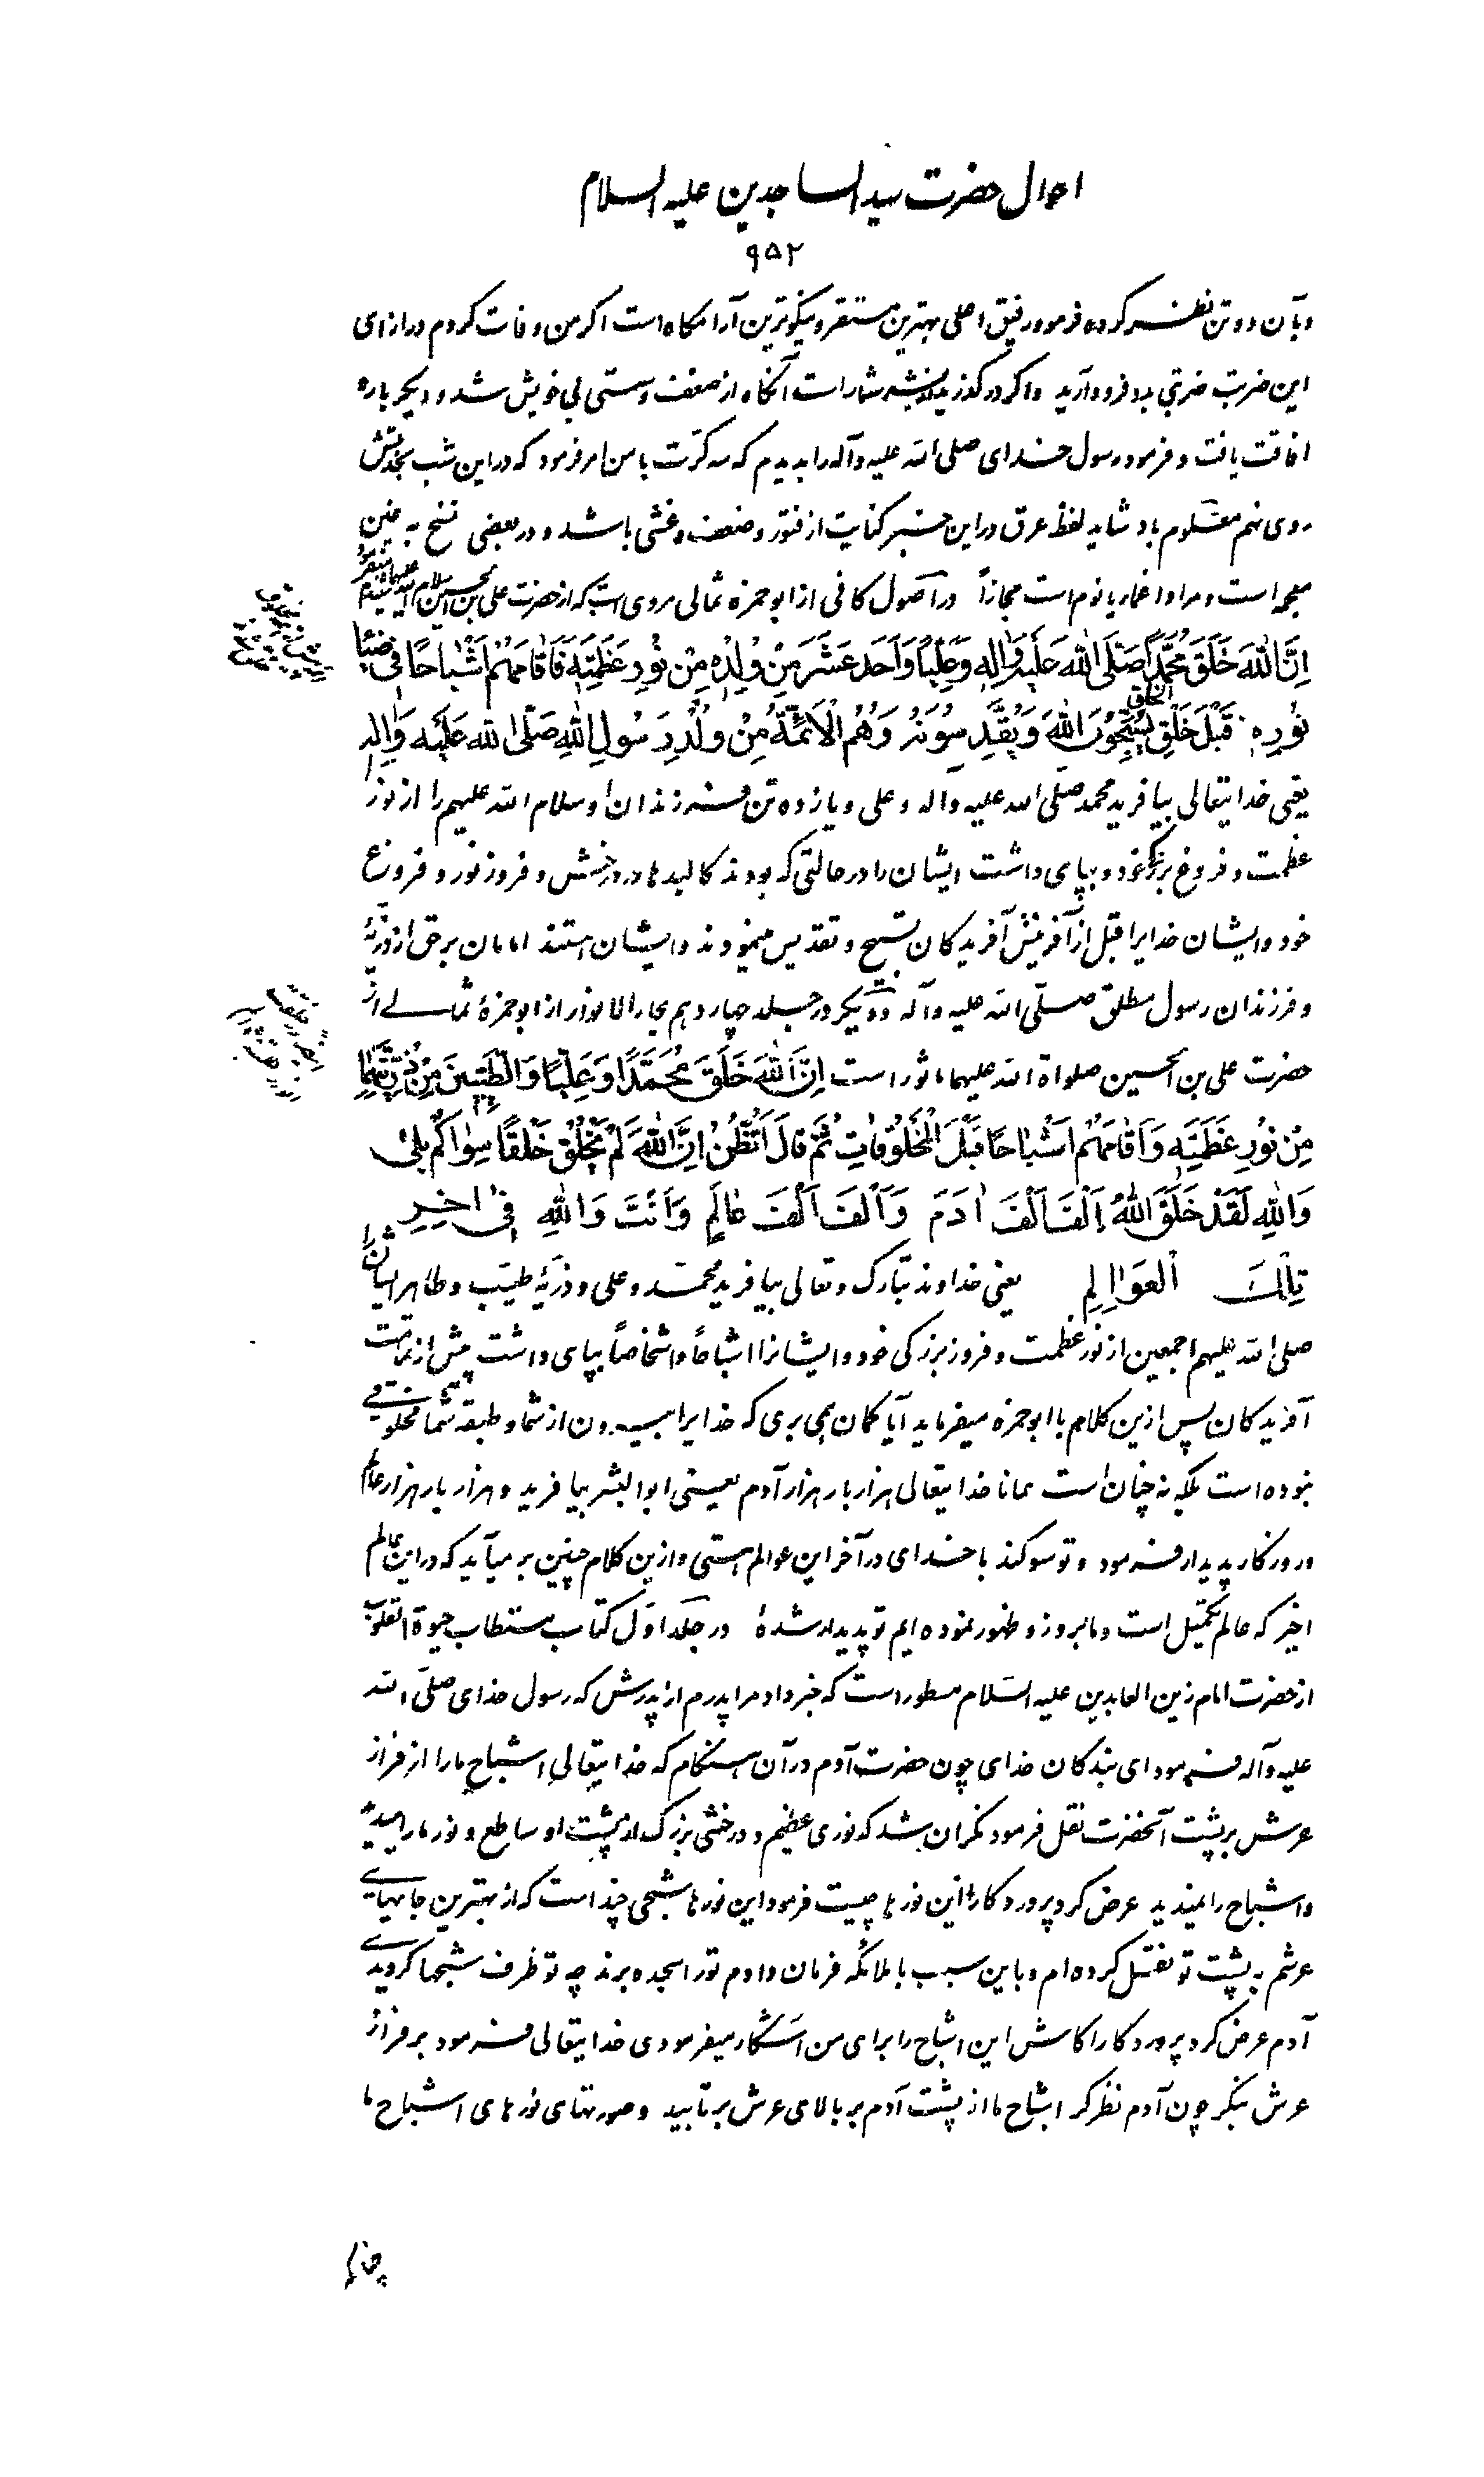 احوال حضرت سید الساجدین علیه السلام
۹۵۲
وبآن دو تن نظر کرده فرمود رفیق اعلی بهترین مستقر و نیکوترین آرامگاه است اگر من وفات کردم در ازای
این ضربت ضربتی بدو فرود آرید واگر درگذرید شما راست آنگاه از ضعف و سستی بی خویش شد و دیگر باره
افاقت یافت و فرمود رسول خدای صلی الله علیه وآله را بدیدم که سه کرت با من امر فرمود که در این شب بخدمتش
روی نهم معلوم باد شاید لفظ عرق در این خبر کنایت از فتور و ضعف و غشی باشد و در بعضی نسخ به غین
معجمه است و مراد اغما یا نوم است مجازاً در اصول کافی از ابوحمزه ثمالی مروی است که از حضرت علی بن الحسین علیهما السلام شنیدم میفرمود
اِنَّ اللهَ خَلَقَ مُحَمَّداً صَلَّی اللهُ عَلَیْهِ وَاٰلِهِ وَعَلِیّاً وَاَحَدَ عَشَرَ مِنْ وُلْدِهِ مِنْ نُورِ عَظَمَتِهِ فَاَقامَهُمْ اَشْباحاً فی ضِیاءِ
نُورِهِ قَبْلَ خَلْقِ الْخَلْقِ یُسَبِّحُونَ اللهَ وَیُقَدِّسُونَهُ وَهُمُ الْاَئِمَّةُ مِنْ وُلْدِ رَسُولِ اللهِ صَلَّی اللهُ عَلَیْهِ وَاٰلِهِ
یعنی خدایتعالی بیافرید محمد صلی الله علیه وآله و علی و یازده تن فرزندان او سلام الله علیهم را از نور
عظمت و فروغ بزرگی خود و بپای داشت ایشان را در حالتی که بودند کالبدها در درخشش و فروز نور و فروغ
خود وایشان خدایرا قبل از آفرینش آفریدگان تسبیح و تقدیس مینمودند وایشان هستند امامان بر حق از ذریّهٔ
و فرزندان رسول مطلق صلّی الله علیه وآله ودیگر در جلد چهاردهم بحارالانوار از ابوحمزهٔ ثمالی از
حضرت علی بن الحسین صلواة الله علیهما ماثور است اِنَّ اللهَ خَلَقَ مُحَمَّداً وَعَلِیّاً وَالطَّیِّبینَ مِنْ ذُرِّیَّتِهِما
مِنْ نُورِ عَظَمَتِهِ وَاَقامَهُمْ اَشْباحاً قَبْلَ الْمَخْلُوقاتِ ثُمَّ قالَ اَتَظُنُّ اِنَّ اللهَ لَمْ یَخْلُقْ خَلْقاً سِواکُمْ بَلی
وَاللهِ لَقَدْ خَلَقَ اللهُ اَلْفَ اَلْفَ اٰدَمَ وَاَلْفَ اَلْفَ عالَمٍ وَاَنْتَ وَاللهِ فی اٰخِرِ
تِلْكَ الْعَوالِمِ یعنی خداوند تبارک وتعالی بیافرید محمد و علی و ذریّهٔ طیّب و طاهر ایشان را
صلی الله علیهم اجمعین از نور عظمت و فروز بزرگی خود وایشانرا اشباحاً واشخاصاً بپای داشت پیش از تمامت
آفریدگان پس ازین کلام با ابوحمزه میفرماید آیا گمان همی بری که خدایرا بیرون از شما و طبقه شما مخلوقی
نبوده است بلکه نه چنان است همانا خدایتعالی هزار بار هزار آدم یعنی ابوالبشر بیافرید و هزار بار هزار عالم
و روزگار پدیدار فرمود و تو سوگند با خدای در آخر این عوالم هستی وازین کلام چنین بر میآید که در این عالم
اخیر که عالم تکمیل است وما بروز و ظهور نموده ایم تو پدیدار شدهٔ در جلد اوّل کتاب مستطاب حیوة القلوب
از حضرت امام زین العابدین علیه السّلام مسطور است که خبر داد مرا پدرم از پدرش که رسول خدای صلّی الله
علیه وآله فرمود ای بندگان خدای چون حضرت آدم در آن هنگام که خدایتعالی اشباح ما را از فراز
عرش بر پشت آنحضرت نقل فرمود نگران شد که نوری عظیم و درخشی بزرگ از پشت او ساطع و نور ما را میدید
واشباح را نمیدید عرض کرد پروردگارا این نورها چیست فرمود این نورها شبحی چند است که از بهترین جاهای
عرشم به پشت تو نقل کرده ام وباین سبب با ملائکه فرمان دادم ترا سجده برند چه تو ظرف شبحها گردیدی
آدم عرض کرد پروردگارا کاش این اشباح را برای من آشکار میفرمودی خدایتعالی فرمود بر فراز
عرش بنگر چون آدم نظر کرد اشباح ما از پشت آدم بر بالای عرش بر تابید وصورتهای نورهای اشباح ما
چنانکه